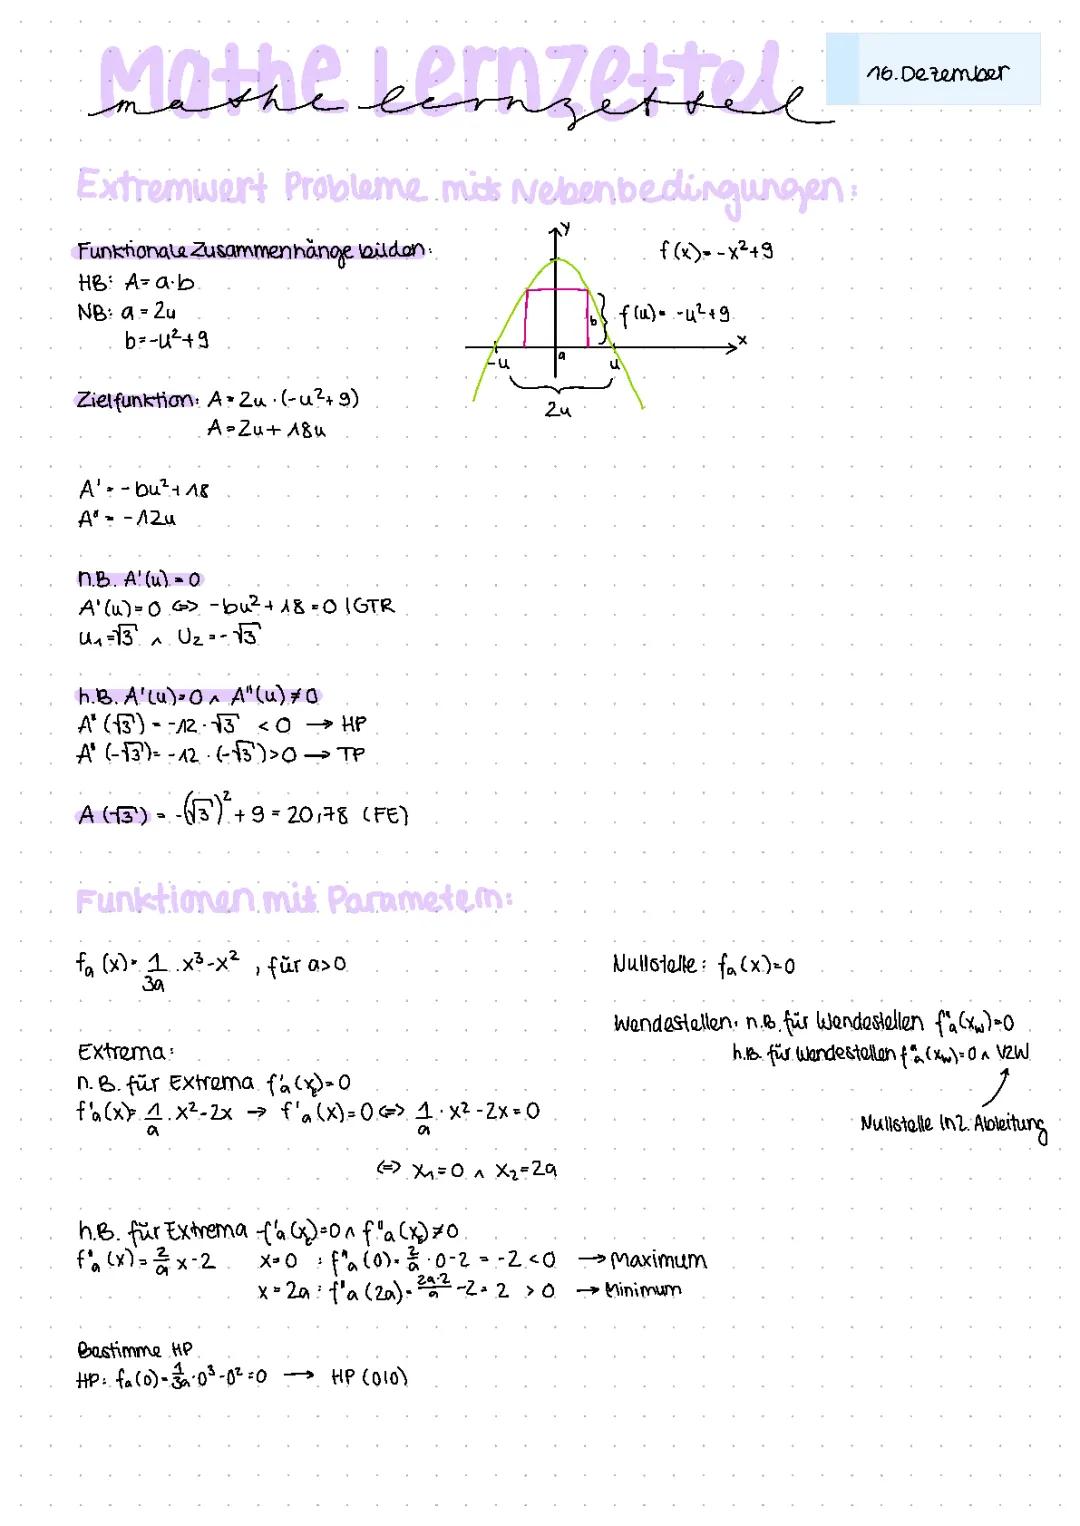 Mathe Lernzettel
mathe lernzettel
16. Dezember
Extremwert Probleme mit Nebenbedingungen:
Funktionale Zusammenhänge bilden:
HB: A = a·b
NB: a = 2u
b = -u²+9
y
f(x) = -x²+9
b
f(u) = -u²+9
x
-u
a
u
2u
Zielfunktion: A = 2u · (-u²+9)
A = 2u + 18u
A' = -6u² + 18
A" = -12u
n.B. A'(u) = 0
A'(u) = 0 <=> -6u² + 18 = 0 | GTR
u₁ = √3 ∧ U₂ = -√3
h.B. A'(u) = 0 ∧ A"(u) ≠ 0
A" (√3) = -12 · √3 < 0 → HP
A" (-√3) = -12 · (-√3) > 0 → TP
A (√3) = -(√3)² + 9 = 20,78 (FE)
Funktionen mit Parametern:
fₐ(x) = 1/3a · x³ - x² , für a>0
Nullstelle: fₐ(x) = 0
Wendestellen: n.B. für Wendestellen f"ₐ(x_w) = 0
h.B. für Wendestellen f"ₐ(x_w) = 0 ∧ VZW
Nullstelle in 2. Ableitung
Extrema:
n.B. für Extrema f'ₐ(x_E) = 0
f'ₐ(x) = 1/a · x² - 2x → f'ₐ(x) = 0 <=> 1/a · x² - 2x = 0
<=> x₁ = 0 ∧ x₂ = 2a
h.B. für Extrema f'ₐ(x_E) = 0 ∧ f"ₐ(x_E) ≠ 0
f"ₐ(x) = 2/a x - 2 x = 0 : f"ₐ(0) = 2/a · 0 - 2 = -2 < 0 → Maximum
x = 2a : f"ₐ(2a) = 2a·2/a - 2 = 2 > 0 → Minimum
Bestimme HP
HP: fₐ(0) = 1/3a · 0³ - 0² = 0 → HP (0|0)